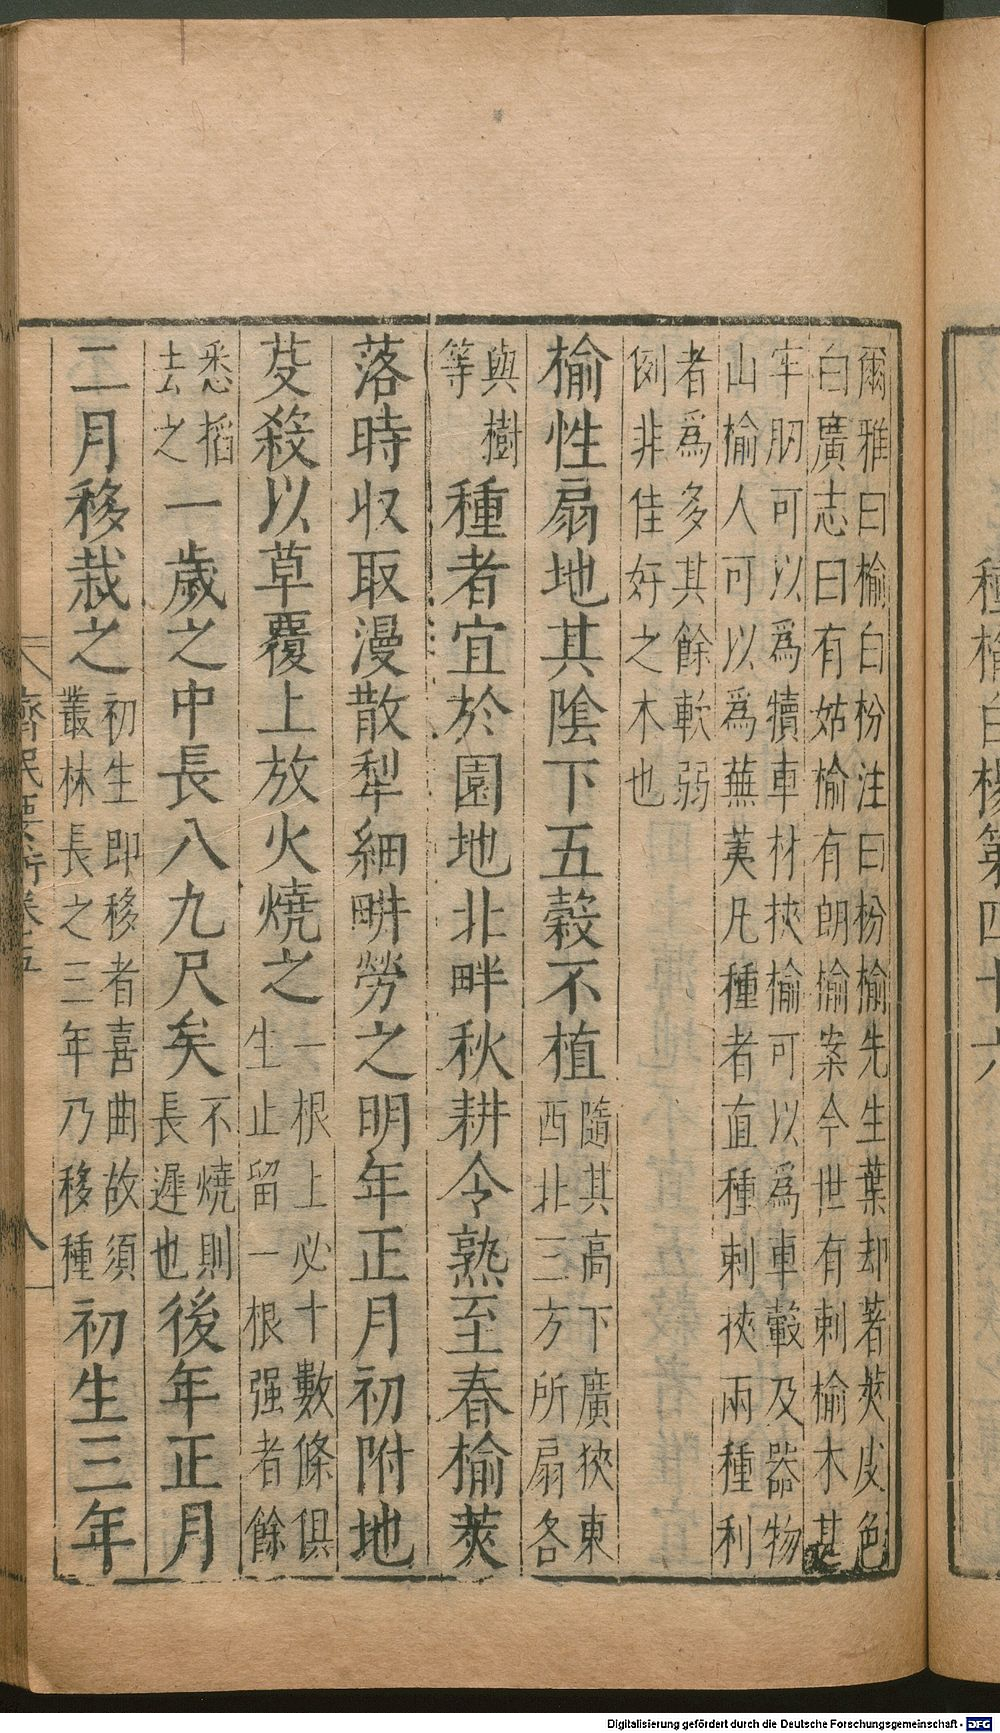 種榆白楊第四十六
爾雅曰榆白枌注曰枌榆先生葉却著莢皮色
白廣志曰有姑榆有朗榆案今世有刺榆木甚
牢肕可以爲犢車材挾榆可以爲車轂及器物
山榆人可以爲蕪荑凡種者宜種刺挾兩種利
者爲多其餘軟弱
例非佳好之木也
榆性扇地其陰下五穀不植
隨其高下廣狹東
西北三方所扇各
與樹
等
種者宜於園地北畔秋耕令熟至春榆莢
落時收取漫散犁細畊勞之明年正月初附地
芟殺以草覆上放火燒之
一根上必十數條俱
生止留一根强者餘
悉搯
去之
一歲之中長八九尺矣
不燒則
長遲也
後年正月
二月移栽之
初生即移者喜曲故須
叢林長之三年乃移種
初生三年
齊民要術卷五
八
Digitalisierung gefördert durch die Deutsche Forschungsgemeinschaft - DFG